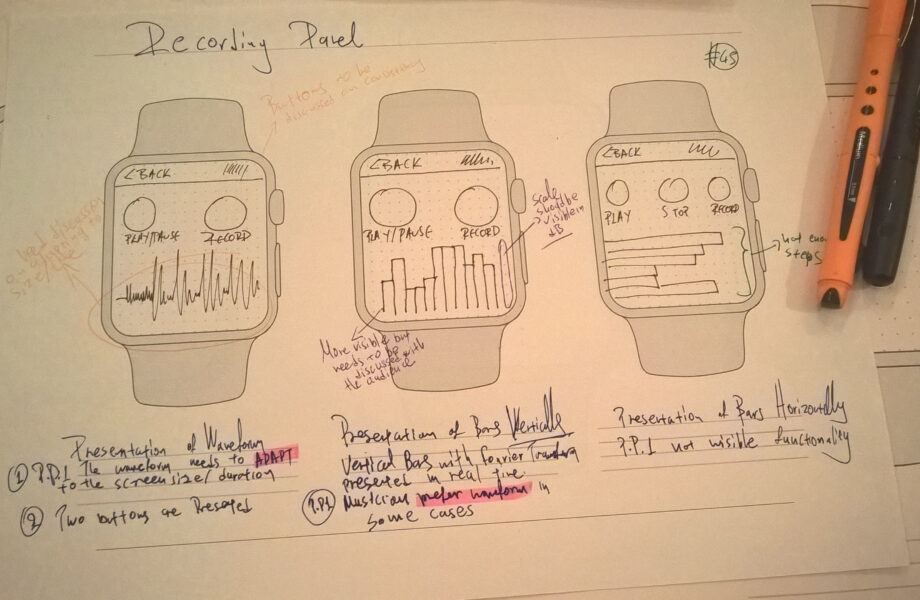 Recording Panel
#45
Buttons to be
discussed on consistency
<BACK
PLAY/PAUSE
RECORD
<BACK
PLAY/PAUSE
RECORD
scale
should be
visible in
dB
More visible but
needs to be
discussed with
the audience
<BACK
PLAY
STOP
RECORD
not
steps
Presentation of Waveform
① P.P.1 The waveform needs to ADAPT
to the screen size/duration
② Two buttons are Preseted
Presentation of Bars Vertically
Vertical Bars with fourier
presented in real time
P.P.1 Musicians prefer waveform in
some cases
Presentation of Bars Horizontally
P.P.1 not visible functionality